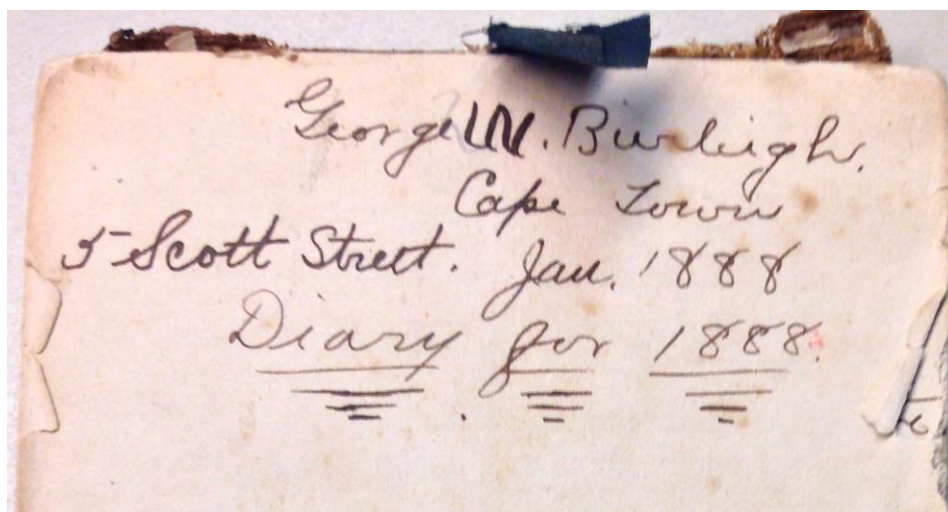 George W. Burleigh.
Cape Town
5 Scott Street. Jan. 1888
Diary for 1888.